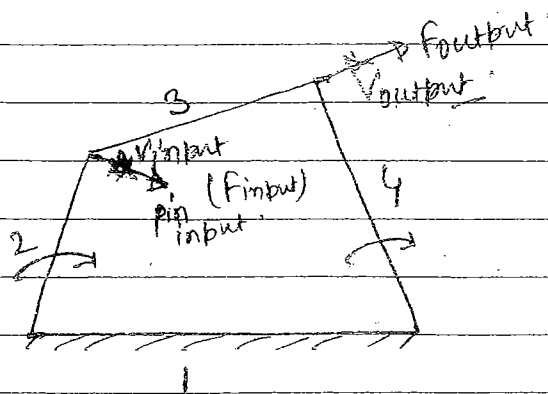 Foutput
Voutput
3
Vinput
(Finput)
pin
input
4
2
1